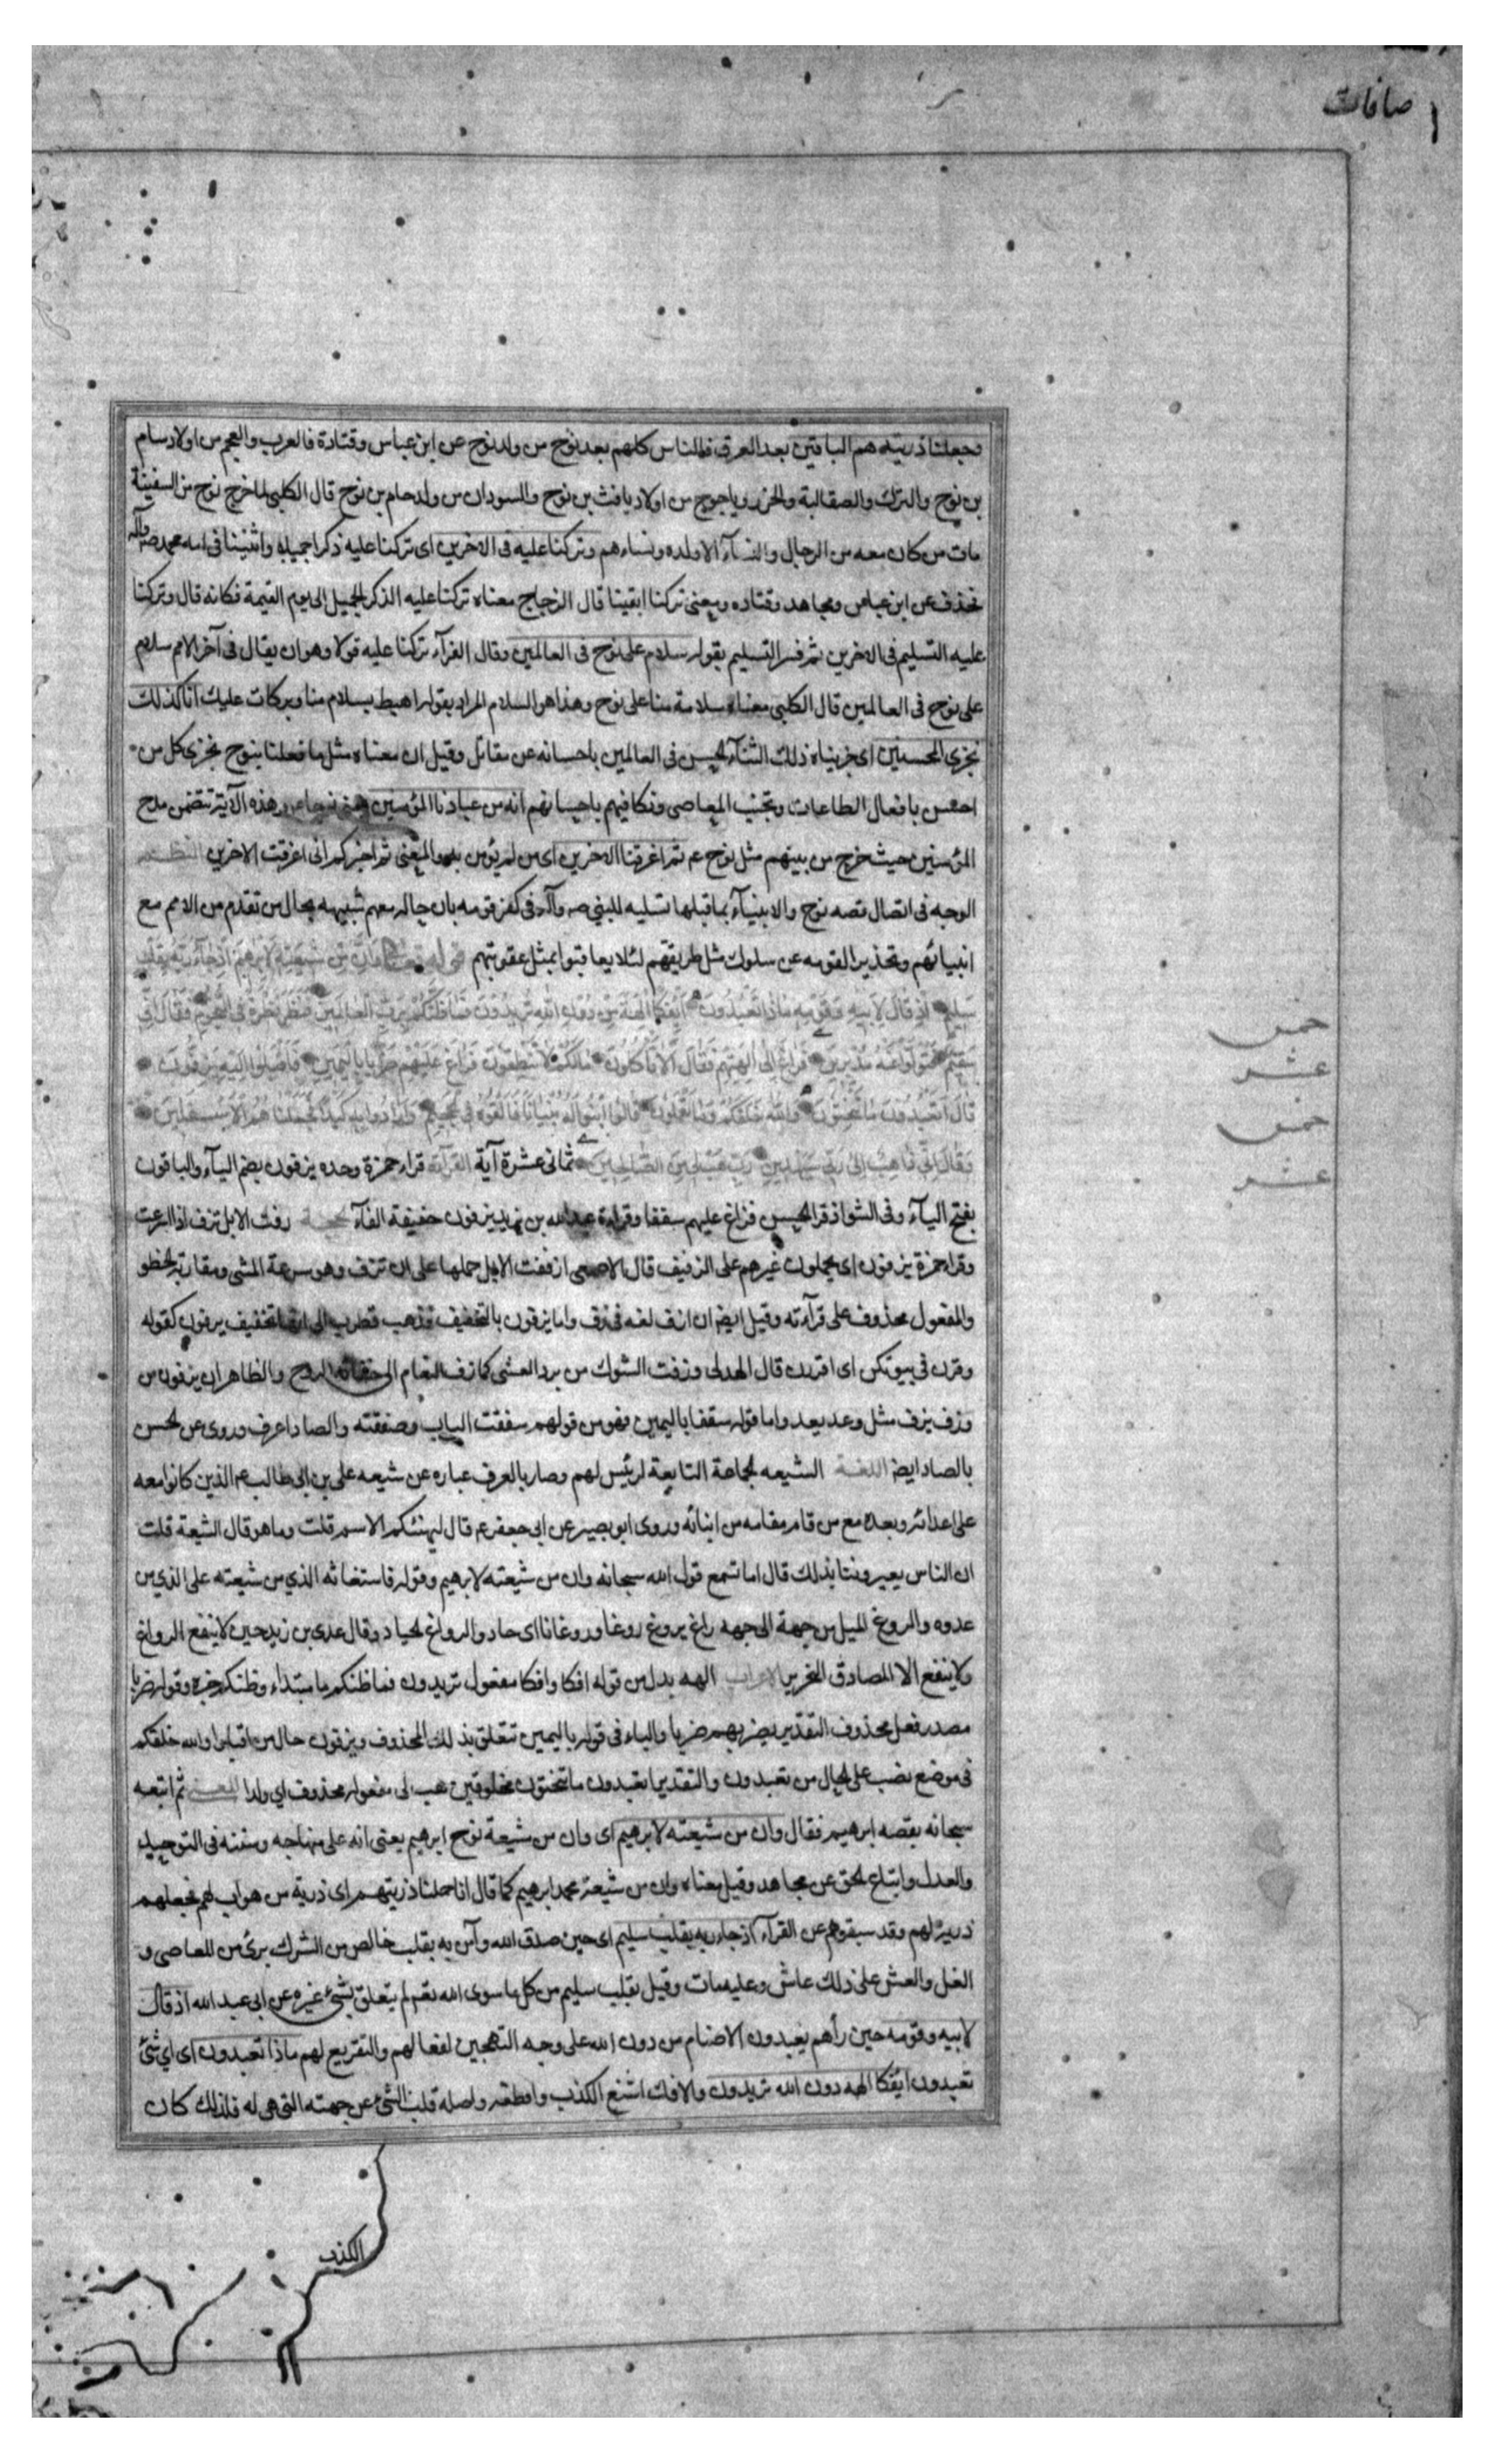 صافات
وجعلنا ذريته هم الباقين بعد الغرق فالناس كلهم بعد نوح من ولد نوح عن ابن عباس وقتادة فالعرب والعجم من اولاد سام
بن نوح والترك والصقالبة والخزر وياجوج من اولاد يافث بن نوح والسودان من ولد حام بن نوح قال الكلبي لما خرج نوح من السفينة
مات من كان معه من الرجال والنسآء الا ولده ونساءهم وتركنا عليه فى الاخرين اى تركنا عليه ذكرا جميلا واثنينا فى امه محمد ص وآله
فحذف عن ابن عباس ومجاهد وقتاده ومعنى تركنا ابقينا قال الزجاج معناه تركنا عليه الذكر الجميل الى يوم القيمة فكانه قال وتركنا
عليه التسليم فى الاخرين ثم فسر التسليم بقوله سلام على نوح فى العالمين وقال الفرآء تركنا عليه قولا وهو ان يقال فى آخر الامم سلام
على نوح فى العالمين قال الكلبى معناه سلامة منا على نوح وهذا هو السلام المراد بقوله اهبط بسلام منا وبركات عليك انا كذلك
نجزى المحسنين اى جزيناه ذلك الثنآء الحسن فى العالمين باحسانه عن مقاتل وقيل ان معناه مثل ما فعلنا بنوح نجزى كل من
احسن بافعال الطاعات وتجنب المعاصى ونكافيهم باحسانهم انه من عبادنا المؤمنين وهذه الآية تتضمن مدح
المؤمنين حيث خرج من بينهم مثل نوح عم ثم اغرقنا الاخرين اى من لم يؤمن به والمعنى ثم اخبركم انى اغرقت الاخرين النظم
الوجه فى اتصال قصه نوح والانبيآء بما قبلها تسليه للنبي ص وآله فى كفر قومه بان حاله معهم شبيهه بحال من تقدم من الامم مع
انبيائهم وتحذير القومه عن سلوك مثل طريقتهم لئلا يعاقبوا بمثل عقوبتهم قوله تعالى وان من شيعته لابرهيم اذ جآء ربه بقلب
سليم اذ قال لابيه وقومه ماذا تعبدون ائفكا الهة دون الله تريدون فما ظنكم برب العالمين فنظر نظرة فى النجوم فقال انى
سقيم فتولوا عنه مدبرين فراغ الى الهتهم فقال الا تاكلون مالكم لا تنطقون فراغ عليهم ضربا باليمين فاقبلوا اليه يزفون
قال اتعبدون ما تنحتون والله خلقكم وما تعملون قالوا ابنوا له بنيانا فالقوه فى الجحيم وارادوا به كيدا فجعلناهم الاسفلين
وقال انى ذاهب الى ربى سيهدين رب هب لى من الصالحين ثمانى عشرة آية القرآءة قراء حمزة وحده يزفون بضم اليآء والباقون
بفتح اليآء وفى الشواذ قرا الحسن فراغ عليهم سفقا وقراءة عبدالله بن يزيد يزفون خفيفة الفآء الحجة زفت الابل تزف اذا اسرعت
وقرا حمزة يزفون اى يحملون غيرهم على الزفيف قال الاصمعى ازففت الابل حملها على ان تزف وهو سرعة المشى ومقاربة الخطو
والمفعول محذوف على قرآءته وقيل ايضا ان ازف لغه فى زف واما يزفون بالتخفيف فذهب قطرب الى انها تخفيف يزفون كقوله
وقرن فى بيوتكن اى اقررن قال الهذلى وزفت الشول من برد العشى كما زف النعام الى حفانه الروح والظاهر ان يزفون من
وزف يزف مثل وعد يعد واما قوله سفقا باليمين فهو من قولهم سفقت الباب وصفقته والصاد اعرف وروى عن الحسن
بالصاد ايضا اللغة الشيعه الجماعة التابعة لرئيس لهم وصار بالعرف عباره عن شيعه على بن ابى طالب عم الذين كانوا معه
على اعدائه وبعده مع من قام مقامه من ابنائه وروى ابو بصير عن ابى جعفر عم قال ليهنئكم الاسم قلت وما هو قال الشيعة قلت
ان الناس يعيروننا بذلك قال اما تسمع قول الله سبحانه وان من شيعته لابرهيم وقوله فاستغاثه الذي من شيعته على الذي من
عدوه والروغ الميل من جهة الى جهه راغ يروغ روغا وروغانا اى حاد والرواغ الحياد وقال عدى بن زيد حين لا ينفع الرواغ
ولا ينفع الا المصادق النحرير الاعراب الهه بدل من قوله افكا وافكا مفعول تريدون فما ظنكم ما مبتداء وظنكم خبره وقوله ضربا
مصدر فعل محذوف التقدير يضربهم ضربا والباء فى قوله باليمين تتعلق بذلك المحذوف ويزفون حال من اقبلوا والله خلقكم
فى موضع نصب على الحال من تعبدون والتقدير اتعبدون ما تنحتون مخلوقين هب لى مفعوله محذوف اي ولدا المعنى ثم اتبعه
سبحانه بقصه ابرهيم فقال وان من شيعته لابرهيم اى وان من شيعة نوح ابرهيم يعنى انه على منهاجه وسنته فى التوحيد
والعدل واتباع الحق عن مجاهد وقيل معناه وان من شيعة محمد ابرهيم كما قال انا حملنا ذريتهم اى ذرية من هو اب لهم فجعلهم
ذرية لهم وقد سبقوهم عن الفرآء اذ جاء ربه بقلب سليم اى حين صدق الله وآمن به بقلب خالص من الشرك برئ من المعاصى و
الغل والغش على ذلك عاش وعليه مات وقيل بقلب سليم من كل ما سوى الله تعم لم يتعلق بشئ غيره عن ابى عبد الله اذ قال
لابيه وقومه حين رأهم يعبدون الاصنام من دون الله على وجه التهجين لفعالهم والتقريع لهم ماذا تعبدون اى اي شئ
تعبدون ائفكا الهه دون الله تريدون والافك اشنع الكذب وافظعه واصله قلب الشئ عن جهته التى هى له فلذلك كان
الكذب
خمس
عشر
خمس
عشر